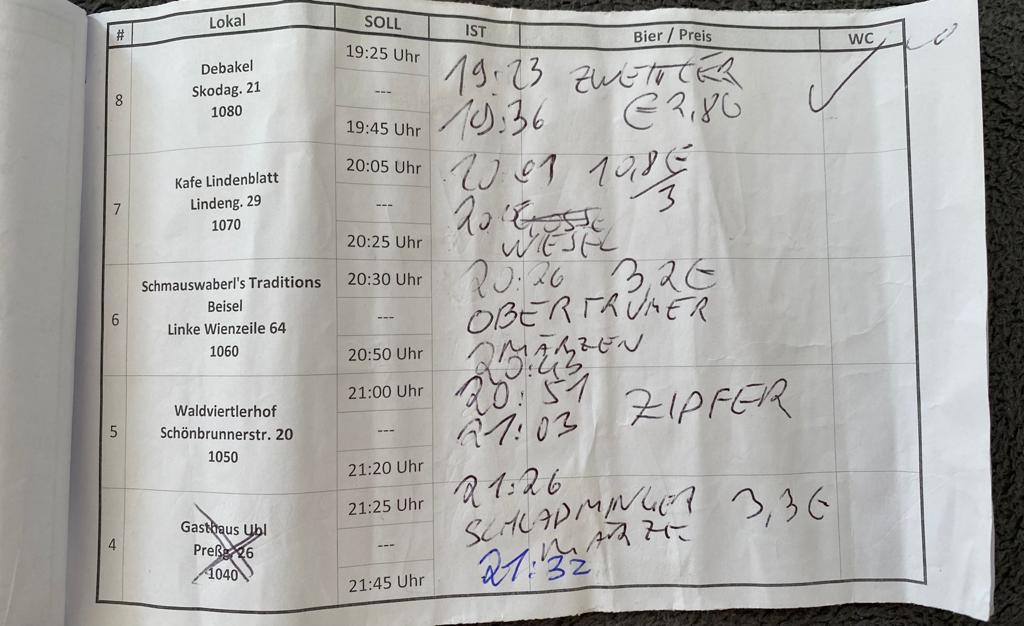 # Lokal SOLL IST Bier / Preis WC
8
Debakel
Skodag. 21
1080
19:25 Uhr
---
19:45 Uhr
19:23 ZWETTLER
19:36 € 2,80
7
Kafe Lindenblatt
Lindeng. 29
1070
20:05 Uhr
---
20:25 Uhr
20:01 10,8€
3
20
WIESEL
6
Schmauswaberl's Traditions
Beisel
Linke Wienzeile 64
1060
20:30 Uhr
---
20:50 Uhr
20:26 3,2€
OBERTRUMER
MÄRZEN
20:43
5
Waldviertlerhof
Schönbrunnerstr. 20
1050
21:00 Uhr
---
21:20 Uhr
20:51 ZIPFER
21:03
4
Gasthaus Ubl
Preßg. 26
1040
21:25 Uhr
---
21:45 Uhr
21:26
SCHLADMINGER 3,3€
21:32